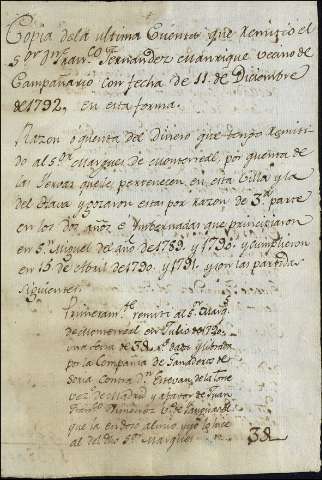 Copia de la ultima Cuenta que Remitio el
Sor Dn Franco Fernandez Manrique vecino de
Campanario con fecha de 11 de Diciembre
de 1792, en esta forma.
Razon o quenta del Dinero que tengo Remiti
do al Sor Marques de Monterreal, por quenta de
las Yervas que le pertenecen en esta Villa y la
del Hava y gozaron estas por razon de 3a parte
en los dos años e Ynbernadas que principiaron
en Sn Miguel de año de 1789, y 1790, y cumplieron
en 15 de Abril de 1790, y 1791, y son las partidas
siguientes.
Primeramte remiti al Sr Marqs
de Monterreal en Julio de 1790,
una letra de 3 dada y librada
por la Compañia de Ganaderos de
Soria Contra Dn Estevan de la Torre
vez de Madrid y a favor de Juan
Franco Ximenez Vo de
que la endoso a mio y yo lo hice
al del dho Sor Marques